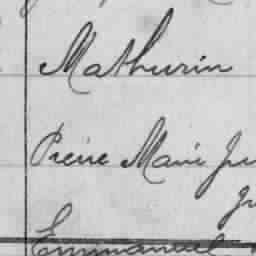 Mathurin
Pierre Marie
Emmanuel